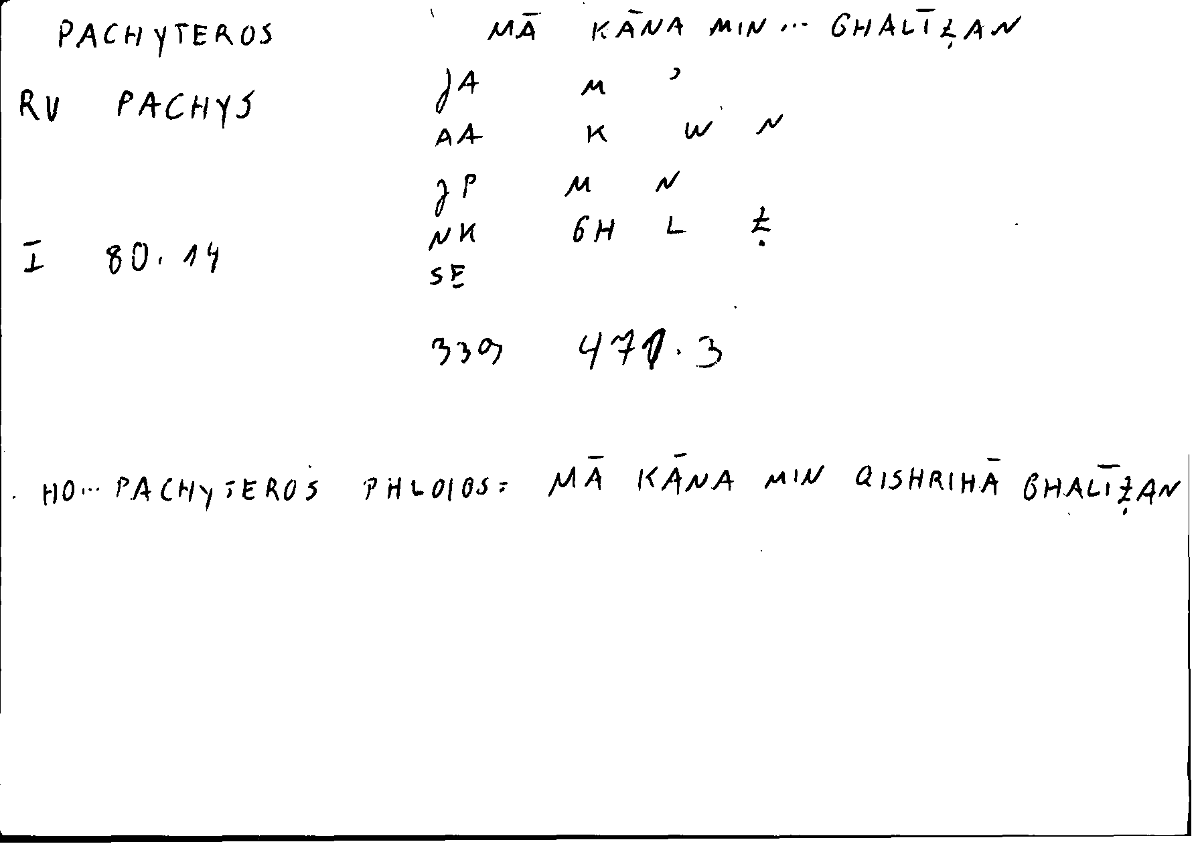 PACHYTEROS MĀ KĀNA MIN ... GHALĪẒAN
RU PACHYS
JA M ʾ
AA K W N
JP M N
I 80.14
NK GH L Ẓ
SE
339 471.3
HO... PACHYTEROS PHLOIOS: MĀ KĀNA MIN QISHRIHĀ GHALĪẒAN